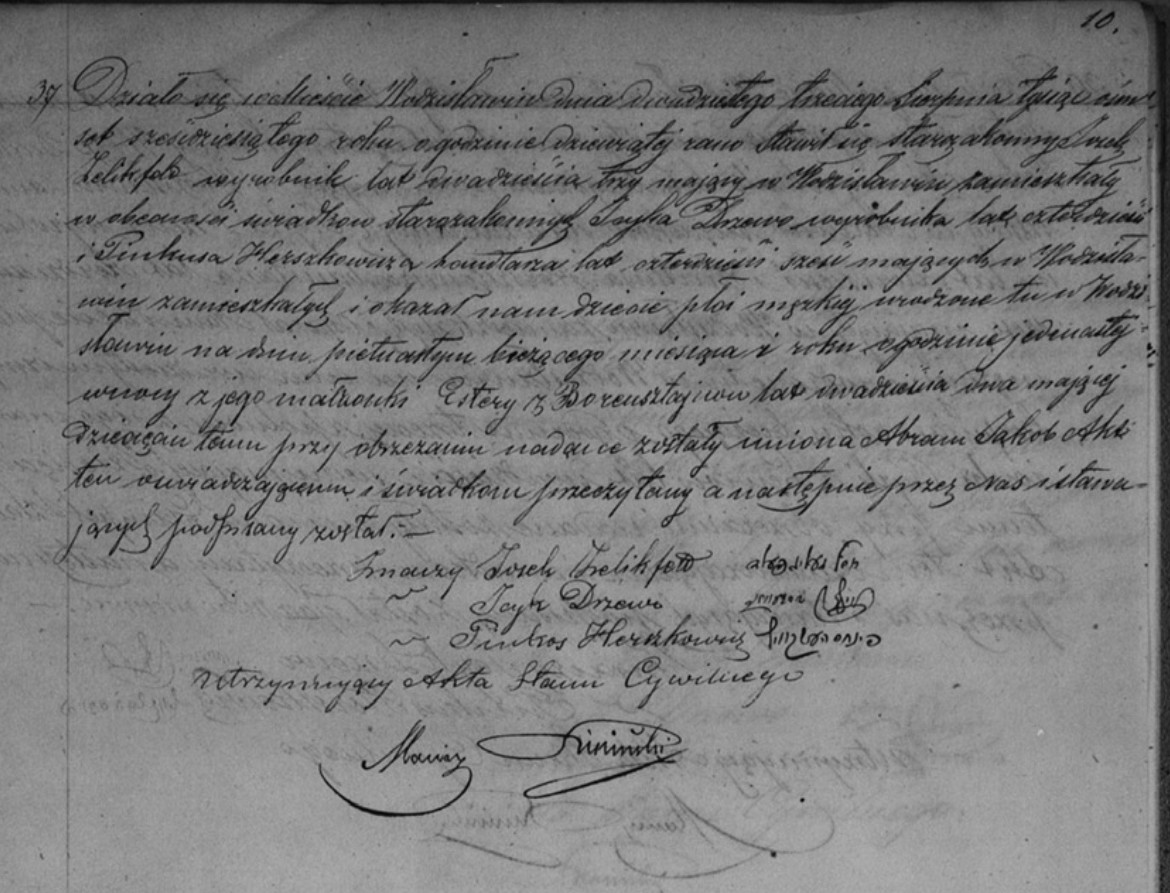 10.
37 Działo się w Mieście Wodzisławiu dnia dwudziestego trzeciego Sierpnia tysiąc ośm-
set sześdziesiątego roku o godzinie dziewiątej rano stawił się starozakonny Josek
Zelikfeld wyrobnik lat dwadzieścia trzy mający w Wodzisławiu zamieszkały
w obecności świadków starozakonnych Icyka Drzewo wyrobnika lat czterdzieści
i Pinkusa Herszkowicza handlarza lat czterdzieści sześć mających w Wodzisła-
wiu zamieszkałych i okazał nam dziecie płci męzkiej urodzone tu w Wodzi-
sławiu na dniu pietnastym bieżącego miesiąca i roku o godzinie jedenasty
w nocy z jego małżonki Estery z Borensztajnów lat dwadzieścia dwa mającej
Dziecięciu temu przy obrzezaniu nadane zostały imiona Abram Jakob Akt
ten oświadczającemu i świadkom przeczytany a następnie przez Nas i stawa-
jących podpisany został.—
Znaczy Josek Zelikfeld
〃 Icyk Drzewo
〃 Pinkos Herszkowicz
Utrzymujący Akta Stanu Cywilnego